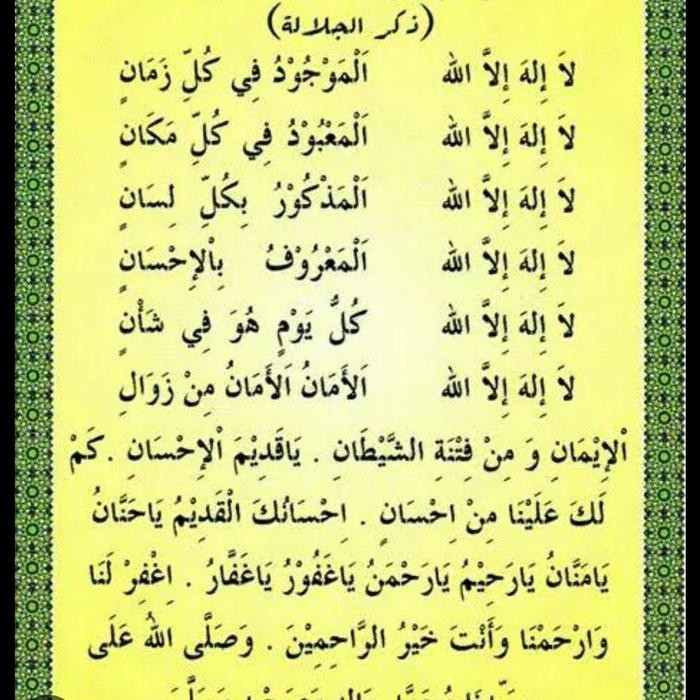 (ذكر الجلالة)
لاَ إِلهَ إِلاَّ الله اَلْمَوْجُوْدُ فِي كُلِّ زَمَانٍ
لاَ إِلهَ إِلاَّ الله اَلْمَعْبُوْدُ فِي كُلِّ مَكَانٍ
لاَ إِلهَ إِلاَّ الله اَلْمَذْكُوْرُ بِكُلِّ لِسَانٍ
لاَ إِلهَ إِلاَّ الله اَلْمَعْرُوْفُ بِاْلإِحْسَانِ
لاَ إِلهَ إِلاَّ الله كُلُّ يَوْمٍ هُوَ فِي شَأْنٍ
لاَ إِلهَ إِلاَّ الله اَلأَمَانُ اَلأَمَانُ مِنْ زَوَالِ
اْلإِيْمَانِ وَ مِنْ فِتْنَةِ الشَّيْطَانِ . يَاقَدِيْمَ اْلإِحْسَانِ . كَمْ
لَكَ عَلَيْنَا مِنْ اِحْسَانٍ . اِحْسَانُكَ الْقَدِيْمُ يَاحَنَّانُ
يَامَنَّانُ يَارَحِيْمُ يَارَحْمَنُ يَاغَفُوْرُ يَاغَفَّارُ . اِغْفِرْ لَنَا
وَارْحَمْنَا وَأَنْتَ خَيْرُ الرَّاحِمِيْنَ . وَصَلَّى اللهُ عَلَى